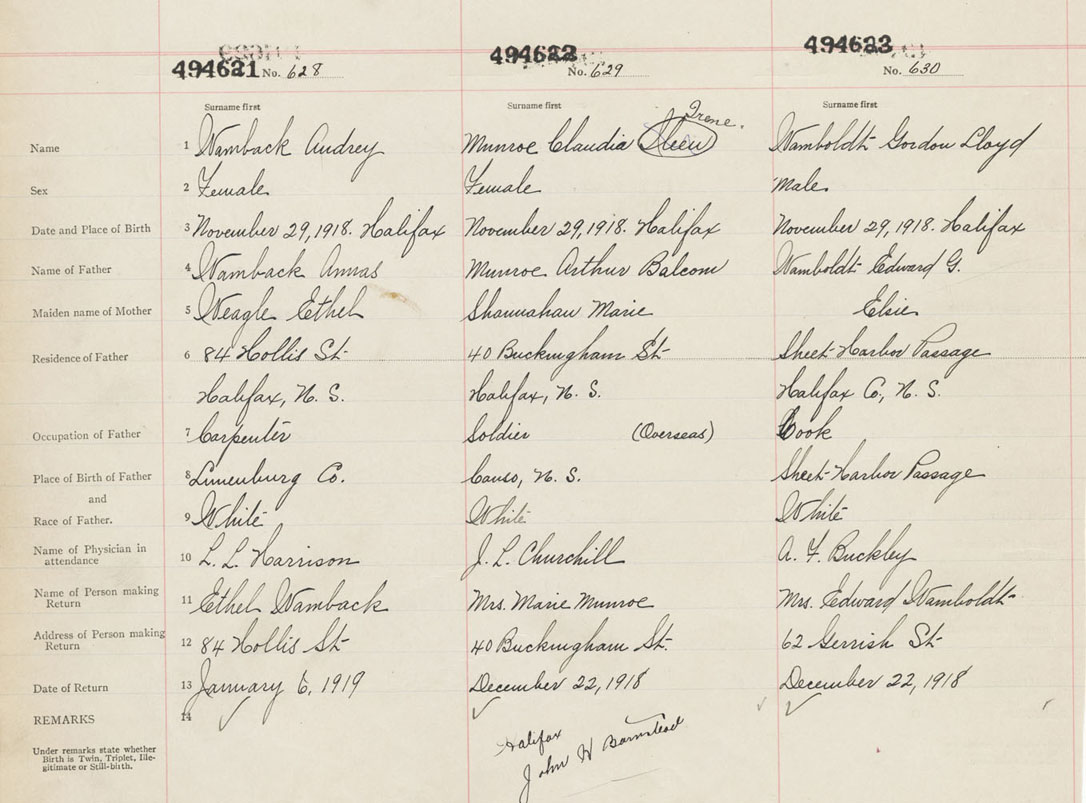 494621 No. 628
494622 No. 629
494623 No. 630
Surname first Surname first Surname first
Irene.
Name 1 Wamback Audrey Munroe Claudia Ileen Wamboldt Gordon Lloyd
Sex 2 Female Female Male
Date and Place of Birth 3 November 29, 1918. Halifax November 29, 1918. Halifax November 29, 1918. Halifax
Name of Father 4 Wamback Annas Munroe Arthur Balcom Wamboldt Edward G.
Maiden name of Mother 5 Weagle Ethel Shannahan Marie Elsie
Residence of Father 6 84 Hollis St 40 Buckingham St Sheet Harbor Passage
Halifax, N. S. Halifax, N. S. Halifax Co., N. S.
Occupation of Father 7 Carpenter Soldier (Overseas) Cook
Place of Birth of Father 8 Lunenburg Co. Canso, N. S. Sheet Harbor Passage
and
Race of Father. 9 White White White
Name of Physician in attendance 10 L. L. Harrison J. L. Churchill A. F. Buckley
Name of Person making Return 11 Ethel Wamback Mrs. Marie Munroe Mrs. Edward Wamboldt
Address of Person making Return 12 84 Hollis St 40 Buckingham St. 62 Gerrish St
Date of Return 13 January 6, 1919 December 22, 1918 December 22, 1918
REMARKS 14
Under remarks state whether
Birth is Twin, Triplet, Ille-
gitimate or Still-birth.
Halifax
John H Barnstead